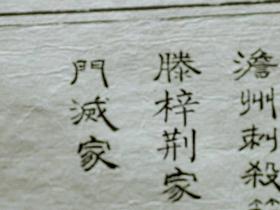 澹州刺殺
滕梓荆家
門滅家